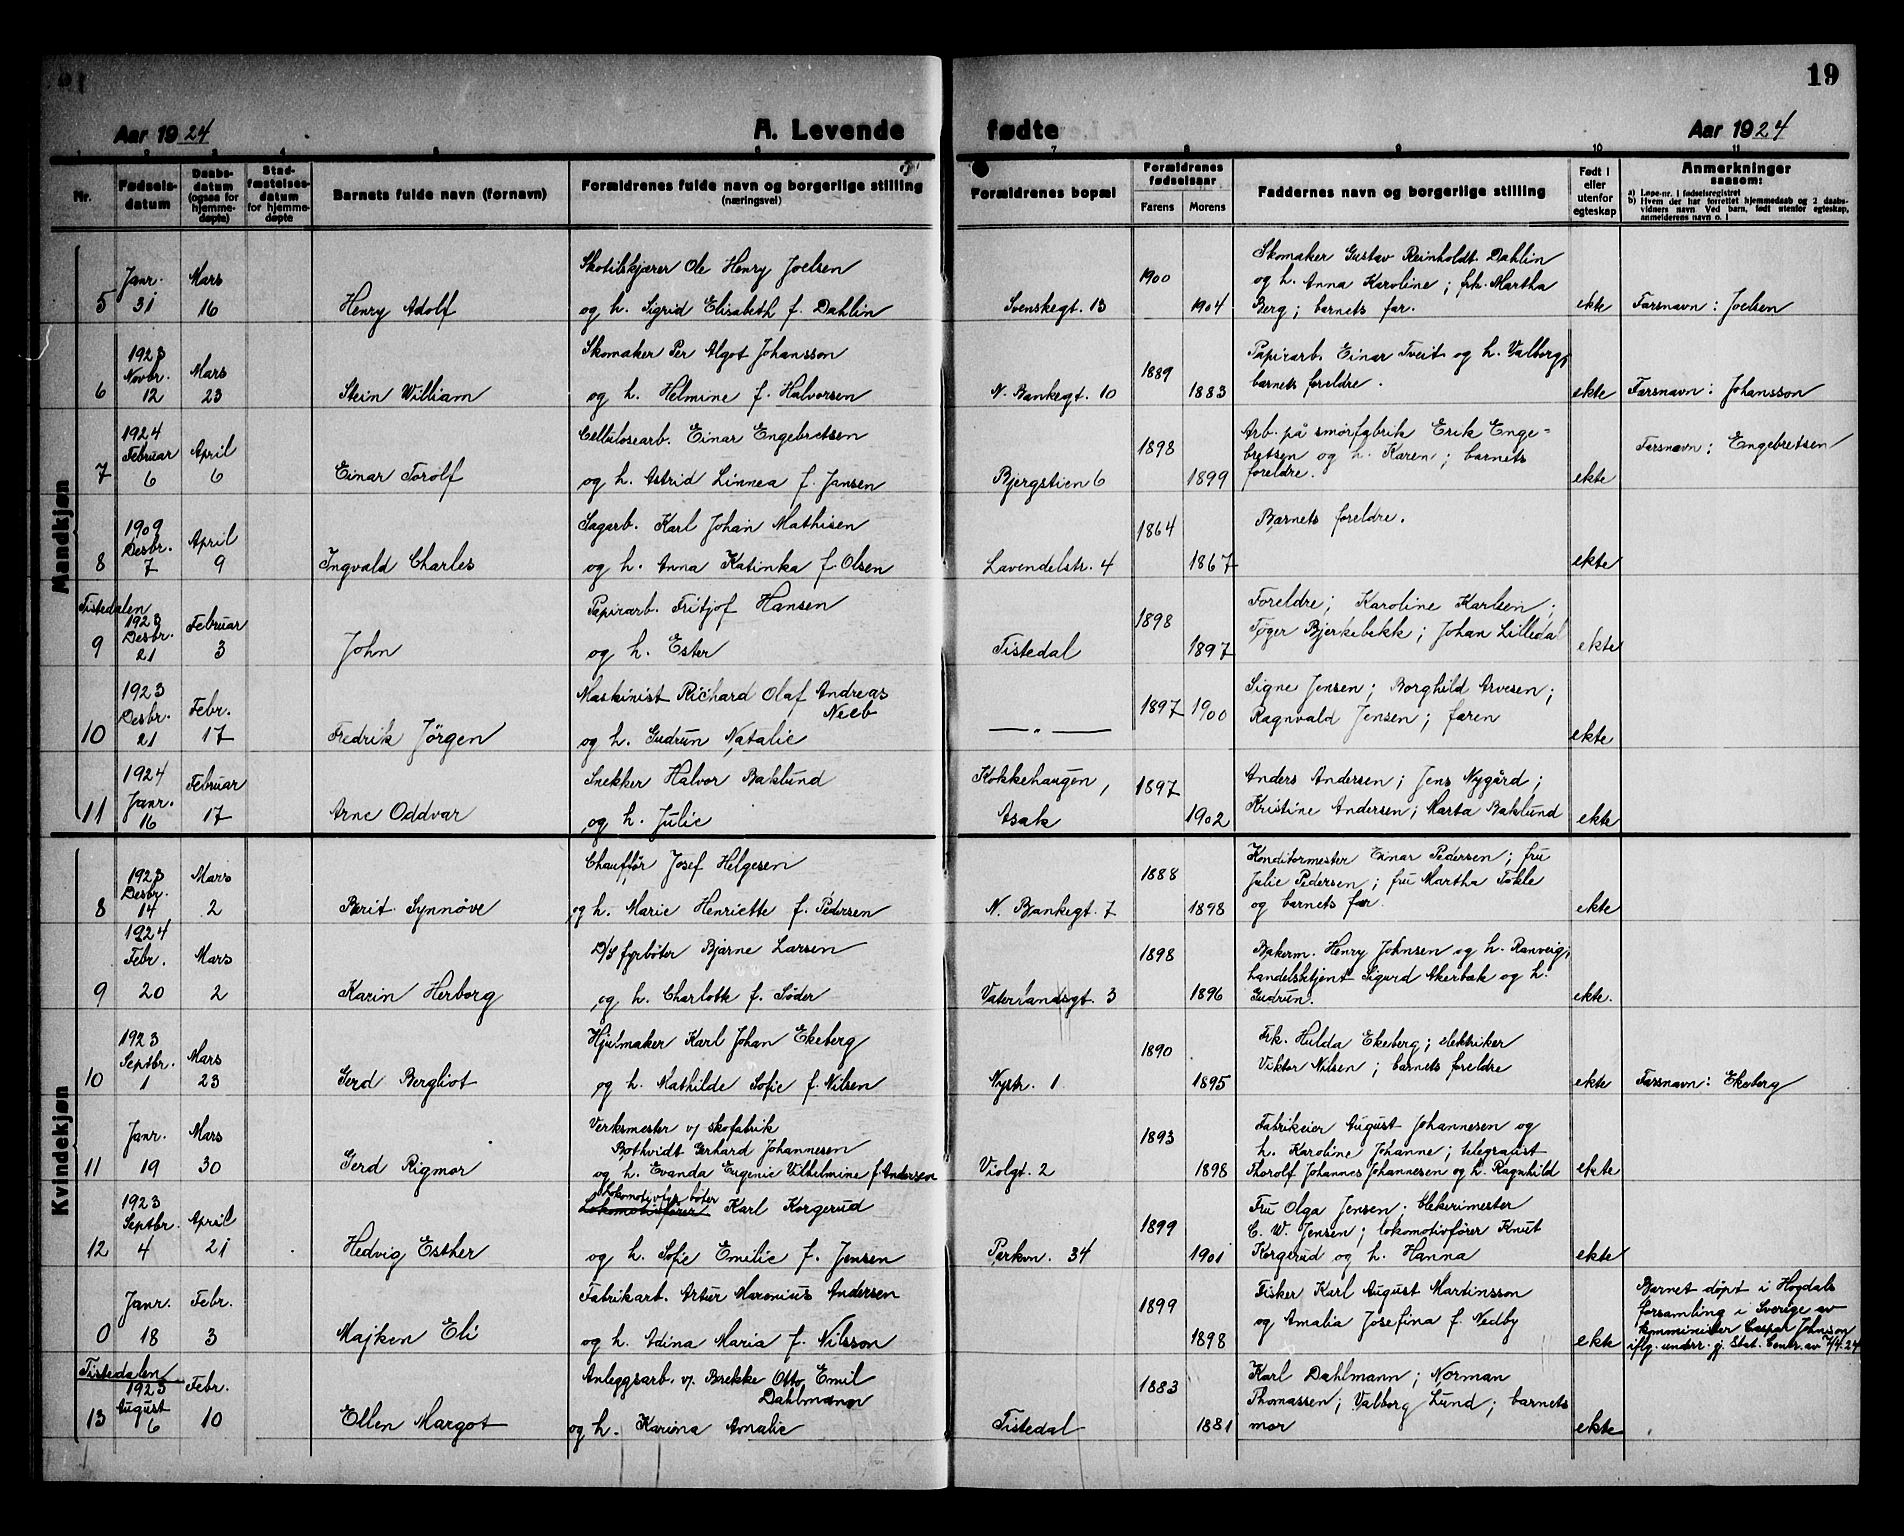 19
Aar 1924
A. Levende
fødte
Aar 1924
Nr.
Fødsels-
datum
Daabs-
datum
(ogsaa for
hjemme-
døpte)
Stad-
fæstelses-
datum
for hjemme-
døpte
Barnets fulde navn (fornavn)
Forældrenes fulde navn og borgerlige stilling
(næringsvei)
Forældrenes bopæl
Forældrenes
fødselsaar
Farens
Morens
Faddernes navn og borgerlige stilling
Født i
eller
utenfor
egteskap
Anmerkninger
saasom:
a) Løpe-nr. i fødselsregistret
b) Hvem der har forrettet hjemmedaab og 2 daabs-
vidners navn. Ved barn, født utenfor egteskap,
anmelderens navn o. l.
Mandkjøn
5
Janr.
31
Mars
16
Henry Adolf
Skotilskjærer Ole Henry Joelsen
og h. Sigrid Elisabeth f. Dahlin
Svenskegt. 13
1900
1904
Skomaker Gustav Reinholdt Dahlin
og h. Anna Karoline; frk. Martha
Berg; barnets far.
ekte
Farsnavn: Joelsen
6
1923
Novbr.
12
Mars
23
Stein William
Skomaker Per Algot Johansson
og h. Helmine f. Halvorsen
N. Bankegt. 10
1889
1883
Papirarb. Einar Tveit og h. Valborg;
barnets foreldre.
ekte
Farsnavn: Johansson
7
1924
Februar
6
April
6
Einar Torolf
Cellulosearb. Einar Engebretsen
og h. Astrid Linnea f. Jansen
Bjergstien 6
1898
1899
Arb. på smørfabrik Erik Enge-
bretsen og h. Karen; barnets
foreldre.
ekte
Farsnavn: Engebretsen
8
1909
Desbr.
7
April
9
Ingvald Charles
Sagarb. Karl Johan Mathisen
og h. Anna Katinka f. Olsen
Lavendelstr. 4
1864
1867
Barnets foreldre.
ekte
Tistedalen
9
1923
Desbr.
21
Februar
3
John
Papirarb. Fritjof Hansen
og h. Ester
Tistedal
1898
1897
Foreldre; Karoline Karlsen;
Tøger Bjerkebekk; Johan Lilledal
ekte
10
1923
Desbr.
21
Febr.
17
Fredrik Jörgen
Maskinist Richard Olaf Andreas
Neeb
og h. Gudrun Natalie
— " —
1897
1900
Signe Jensen; Borghild Arvesen;
Ragnvald Jensen; faren
ekte
11
1924
Janr.
16
Februar
17
Arne Oddvar
Snekker Halvor Baklund
og h. Julie
Kokkehaugen,
Asak
1897
1902
Anders Andersen; Jens Nygård;
Kristine Andersen; Marta Baklund
ekte
Kvindekjøn
8
1923
Desbr.
14
Mars
2
Berit Synnøve
Chauffør Josef Helgesen
og h. Marie Henriette f. Pedersen
N. Bankegt. 7
1888
1898
Konditormester Einar Pedersen; fru
Julie Pedersen; fru Martha Tokle
og barnets far.
ekte
9
1924
Febr.
20
Mars
2
Karin Herborg
D/S fyrbøter Bjarne Larsen
og h. Charlotte f. Söder
Vaterlandsgt. 3
1898
1896
Bakerm. Henry Johnsen og h. Ranveig;
handelsbetjent Sigurd Akerbæk og h.
Gudrun.
ekte.
10
1923
Septbr.
1
Mars
23
Gerd Bergliot
Hjulmaker Karl Johan Ekeberg
og h. Mathilde Sofie f. Nilsen
Nystr. 1
1890
1895
Frk. Hulda Ekeberg; elektriker
Viktor Nilsen; barnets foreldre
ekte
Farsnavn: Ekeberg
11
Janr.
19
Mars
30
Gerd Rigmor
Verksmester v/ skofabrik
Bothvidt Gerhard Johannesen
og h. Evanda Eugenie Vilhelmine f. Anderson
Violgt. 2
1893
1898
Fabrikeier August Johannesen og
h. Karoline Johanne; telegrafist
Thorolf Johannes Johannesen og h. Ragnhild
ekte
12
1923
Septbr.
4
April
21
Hedvig Esther
Lokomotivfyrbøter
Lokomotivfører Karl Korgerud
og h. Sofie Emilie f. Jensen
Parkvn. 34
1899
1901
Fru Olga Jensen; blekerimester
C. W. Jensen; lokomotivfører Knut
Korgerud og h. Hanna
ekte
0
Janr.
18
Febr.
3
Majken Eli
Fabrikarb. Artur Maronius Andersen
og h. Adina Maria f. Nilsson
1899
1898
Fisker Karl August Martinsson
og Amalia Josefina f. Nedby
ekte
Barnet døpt i Hogdals
forsamling i Sverige av
komminister Caspar Johnsson
iflg. underr. g. Stat. Centr. av 7/4.24
Tistedalen
13
1923
August
6
Febr.
10
Ellen Margot
Anleggsarb. v/ Brekke Otto Emil
Dahlmann
og h. Karina Amalie
Tistedal
1883
1881
Karl Dahlmann; Norman
Thomassen; Valborg Lund; barnets
mor
ekte